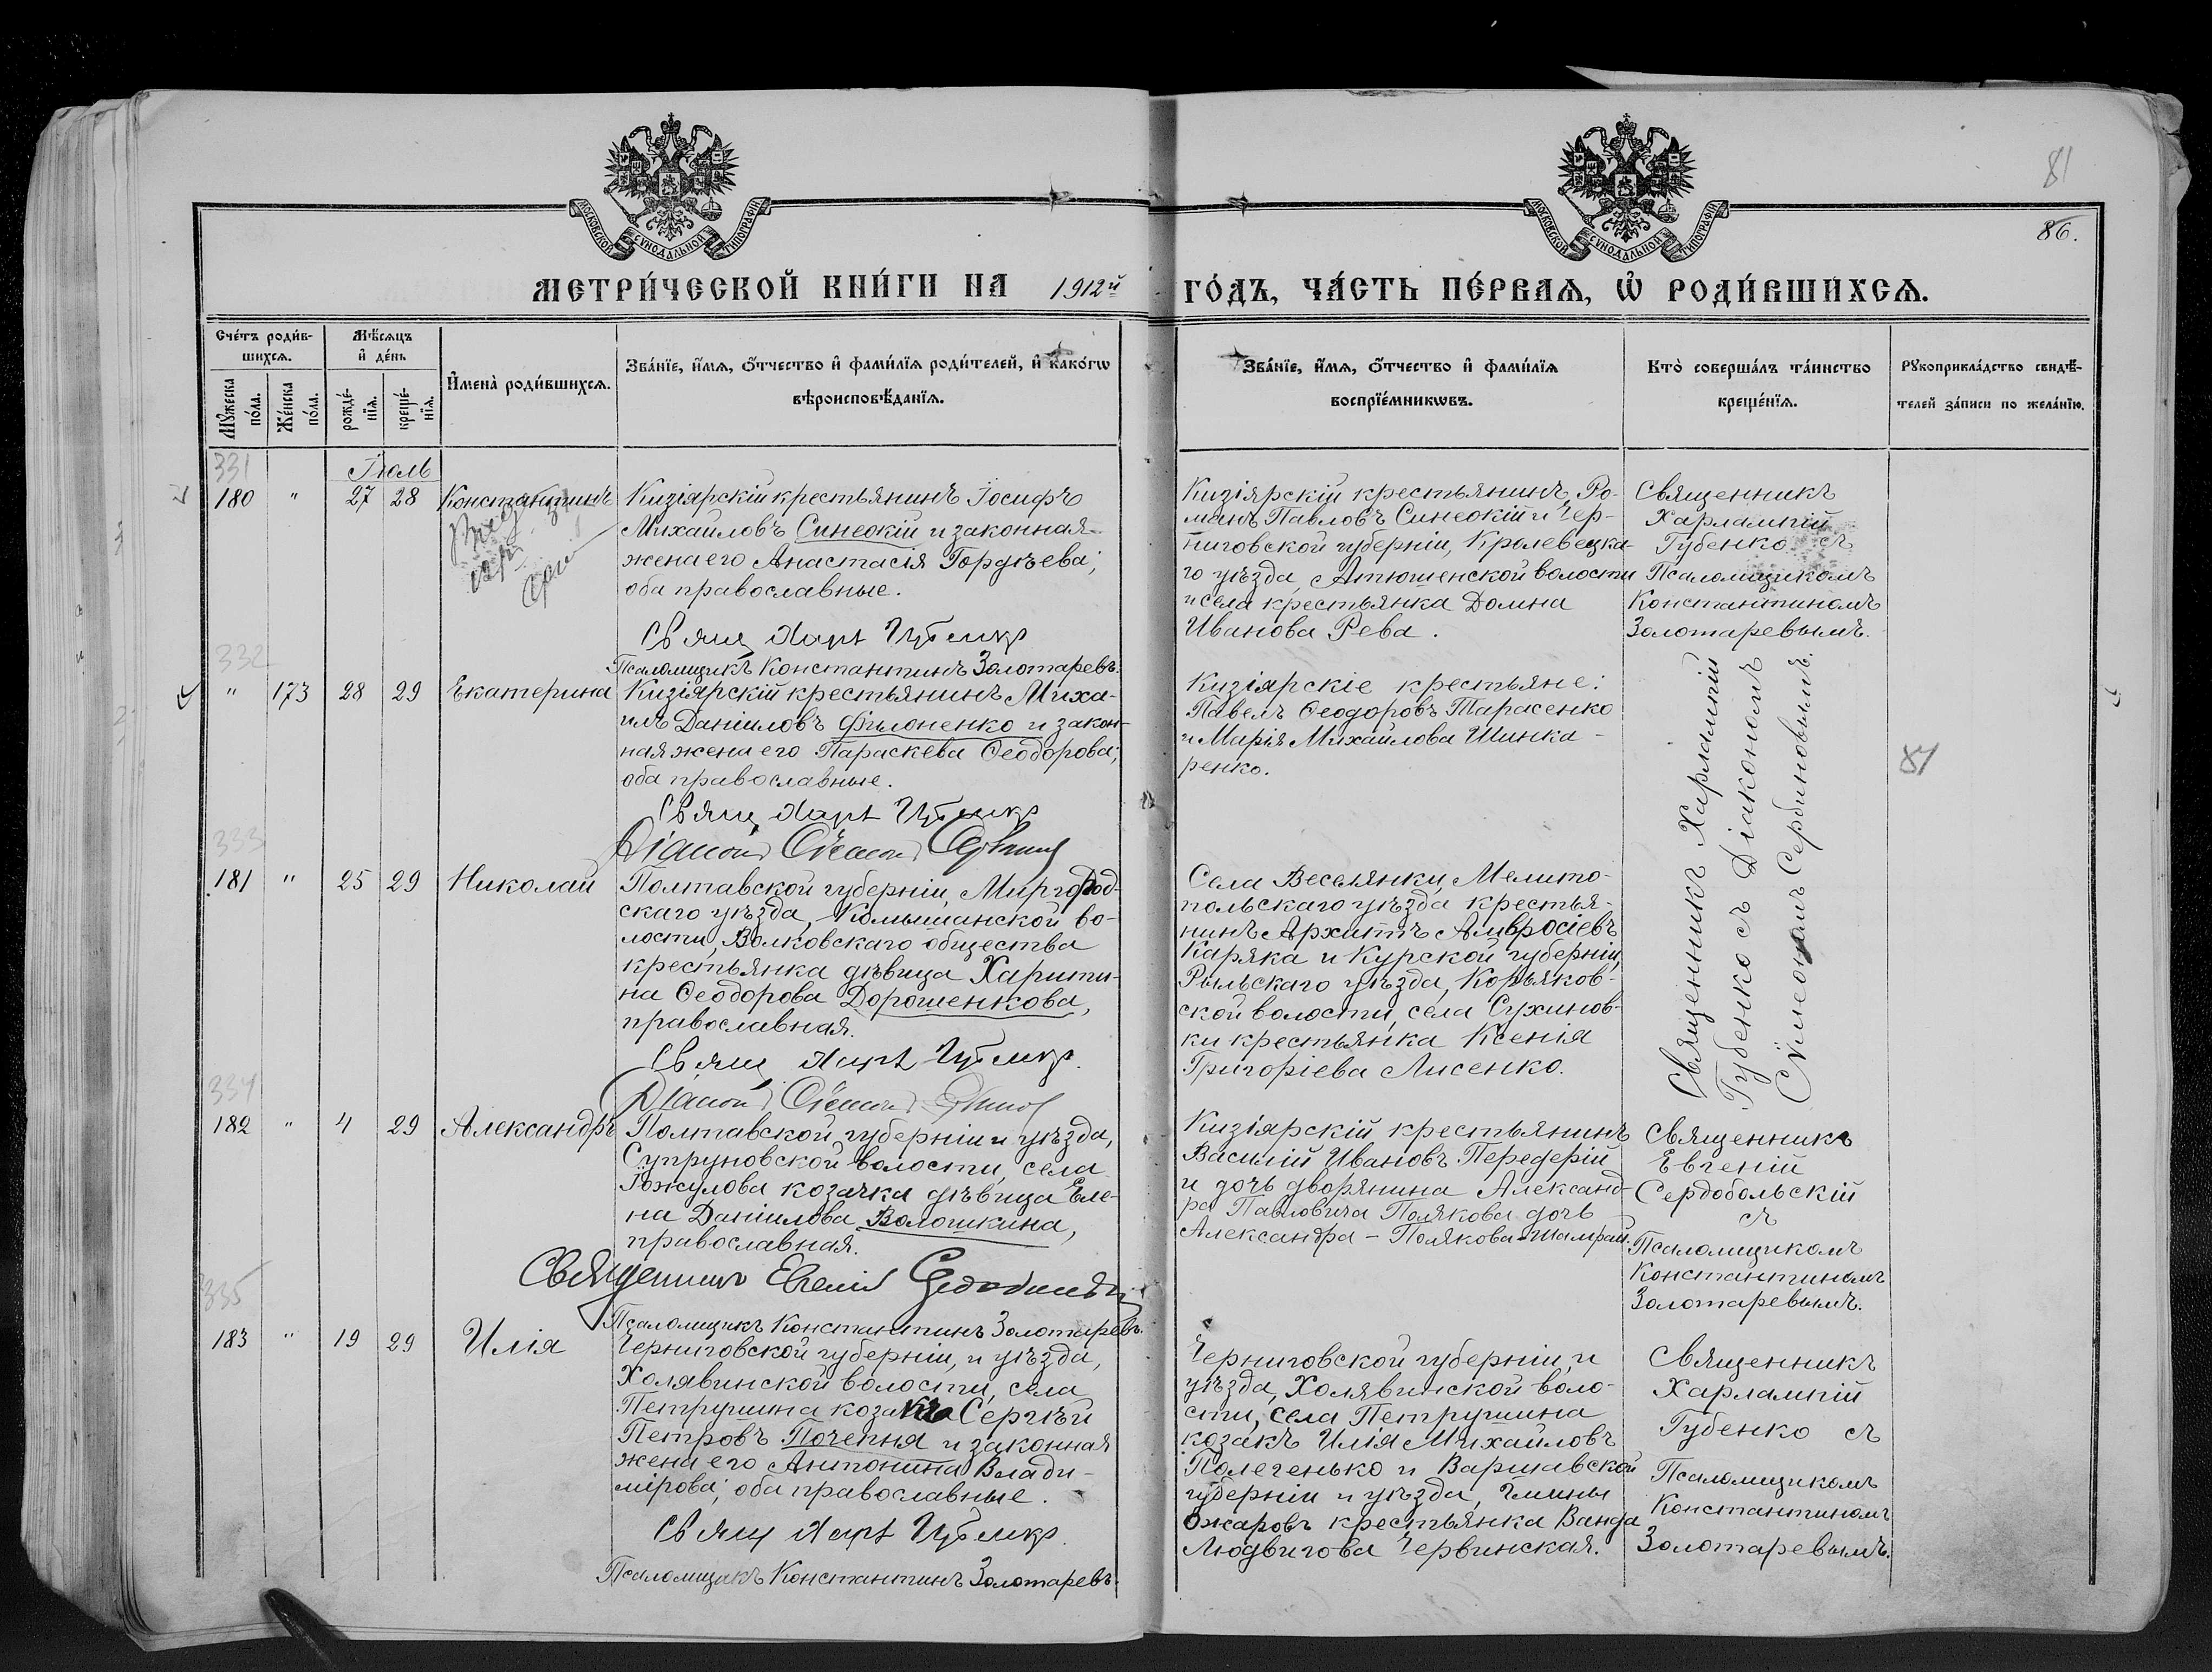 81
86.
МОСКОВСКОЙ СѴНОДАЛЬНОЙ ТИПОГРАФІИ
МОСКОВСКОЙ СѴНОДАЛЬНОЙ ТИПОГРАФІИ
МЕТРИ́ЧЕСКОЙ КНИ́ГИ НА 1912й ГО́ДЪ, ЧА́СТЬ ПЕ́РВАѦ, Ѡ҆ РОДИ́ВШИХСѦ.
Сче́тъ роди́в-
шихсѧ.
Мѣ́сѧцъ
и҆ де́нь
Мꙋ́жеска
по́ла.
Же́нска
по́ла.
рожде́-
нїѧ.
креще́-
нїѧ.
И҆мена̀ роди́вшихсѧ.
Зва́нїе, и҆́мѧ, ѻ҆́тчество и҆ фами́лїѧ роди́телей, и҆ како́гѡ
вѣроисповѣ́данїѧ.
Зва́нїе, и҆́мѧ, ѻ҆́тчество и҆ фами́лїѧ
воспрїе́мникѡвъ.
Кто̀ соверша́лъ та́инство
креще́нїѧ.
Рꙋкоприкла́дство свидѣ́-
телей за́писи по жела́нїю.
331 " Іюль
180 " 27 28 Константинъ
Кизіярскій крестьянинъ Іосифъ
Михайловъ Синеокій и законная
жена его Анастасія Гордѣева;
оба православные.
Свящ Харл Губенко
Псаломщикъ Константинъ Золотаревъ.
Кизіярскій крестьянинъ, Ро-
манъ Павловъ Синеокій и Чер-
ниговской губерніи, Кролевецка-
го уѣзда, Атюшенской волости
и села крестьянка Домна
Иванова Рева.
Священникъ
Харлампій
Губенко съ
Псаломщикомъ
Константиномъ
Золотаревымъ.
332
" 173 28 29 Екатерина
Кизіярскій крестьянинъ Миха-
илъ Даніиловъ Филоненко и закон-
ная жена его Параскева Ѳеодорова;
оба православные.
Свящ Харл Губенко
Діаконъ Сѵмеонъ Сербиновъ
Кизіярскіе крестьяне:
Павелъ Ѳеодоровъ Тарасенко
и Марія Михайлова Шинка-
ренко.
Священникъ Харлампій
Губенко съ Діакономъ
Сѵмеономъ Сербиновымъ.
87
333
181 " 25 29 Николай
Полтавской губерніи, Миргород-
скаго уѣзда, Комышанской во-
лости, Волковскаго общества
крестьянка дѣвица Харити-
на Ѳеодорова Дорошенкова,
православная.
Свящ Харл Губенко.
Діаконъ Сѵмеонъ
Села Веселянки, Мелито-
польскаго уѣзда крестья-
нинъ Архиппъ Амвросіевъ
Каряка и Курской губерніи,
Рыльскаго уѣзда, Кобьяков-
ской волости, села Сухинов-
ки крестьянка Ксенія
Григоріева Лисенко.
334
182 " 4 29 Александръ
Полтавской губерніи и уѣзда,
Супруновской волости, села
Гожулова козачка дѣвица Еле-
на Даніилова Волошкина,
православная.
Священникъ Евгеній Сердобольскій
Псаломщикъ Константинъ Золотаревъ.
Кизіярскій крестьянинъ
Василій Ивановъ Передерій
и дочь дворянина Александ-
ра Павловича Полякова дочь
Александра - Полякова-Шамрай.
Священникъ
Евгеній
Сердобольскій
съ
Псаломщикомъ
Константиномъ
Золотаревымъ.
335
183 " 19 29 Илія
Черниговской губерніи, и уѣзда,
Холявинской волости, села
Петрушина козакъ Сергѣй
Петровъ Почепня и законная
жена его Антонина Влади-
мірова; оба православные.
Свящ Харл Губенко.
Псаломщикъ Константинъ Золотаревъ.
Черниговской губерніи, и
уѣзда, Холявинской воло-
сти, села Петрушина
козакъ Илія Михайловъ
Полегенько и Варшавской
губерніи и уѣзда, гмины
Ожаровъ крестьянка Ванда
Людвигова Червинская.
Священникъ
Харлампій
Губенко съ
Псаломщикомъ
Константиномъ
Золотаревымъ.